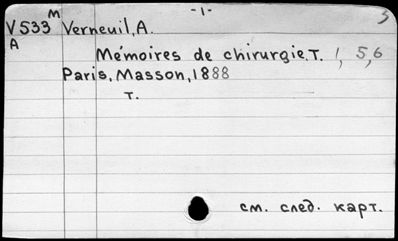 M -1- 3
V533 Verneuil, A.
A
Mémoires de chirurgie. T. 1, 5, 6
Paris, Masson, 1888
T.
см. след. карт.